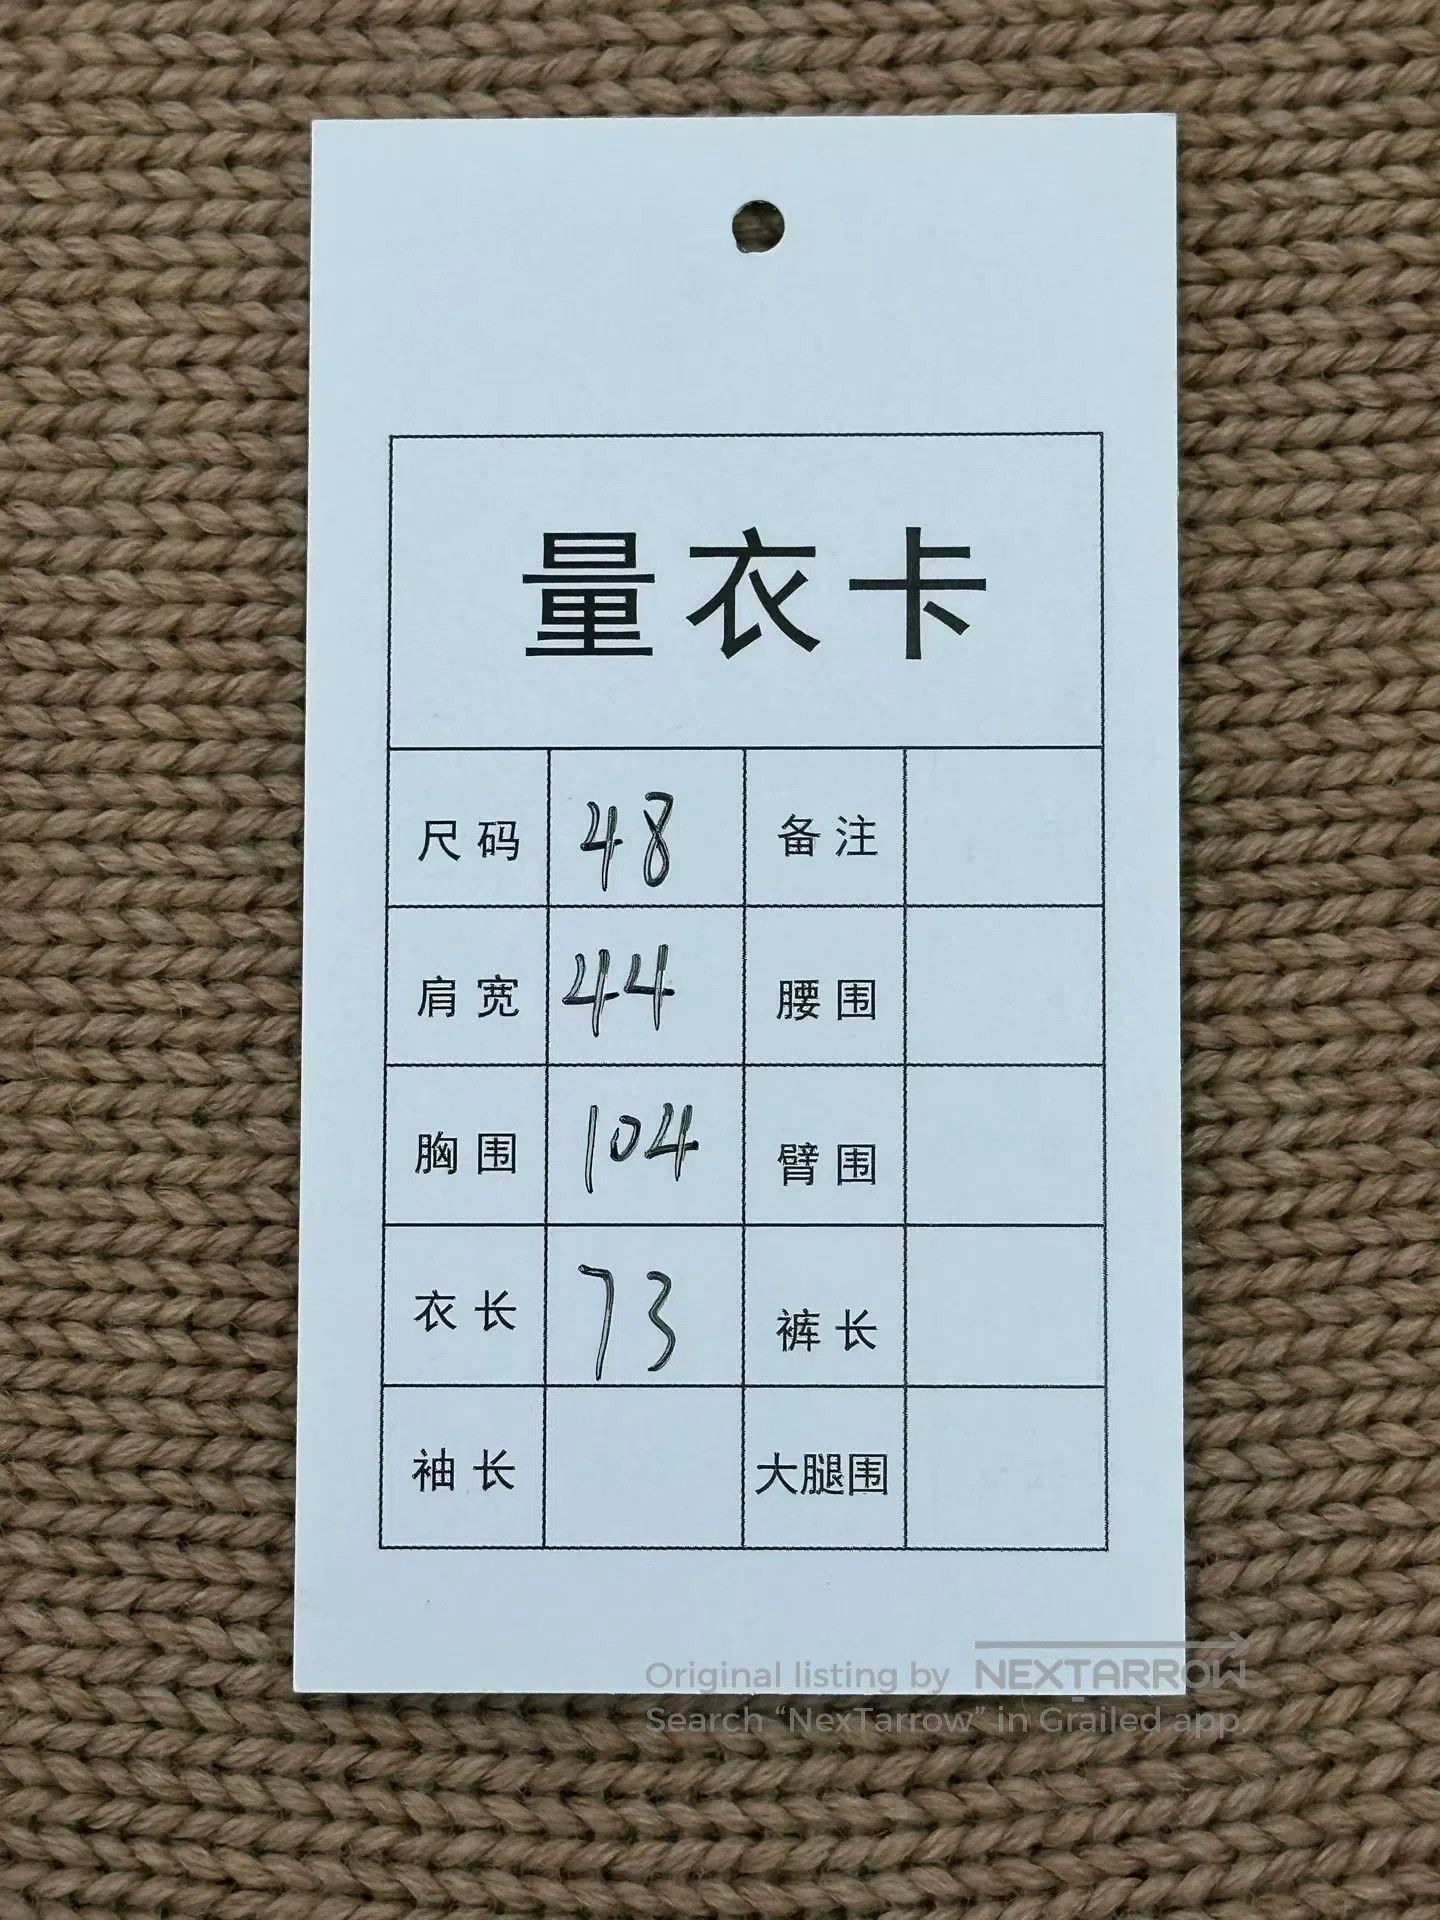 量衣卡
尺码 48 备注
肩宽 44 腰围
胸围 104 臂围
衣长 73 裤长
袖长 大腿围
Original listing by NEXTARROW
Search “NexTarrow” in Grailed app.